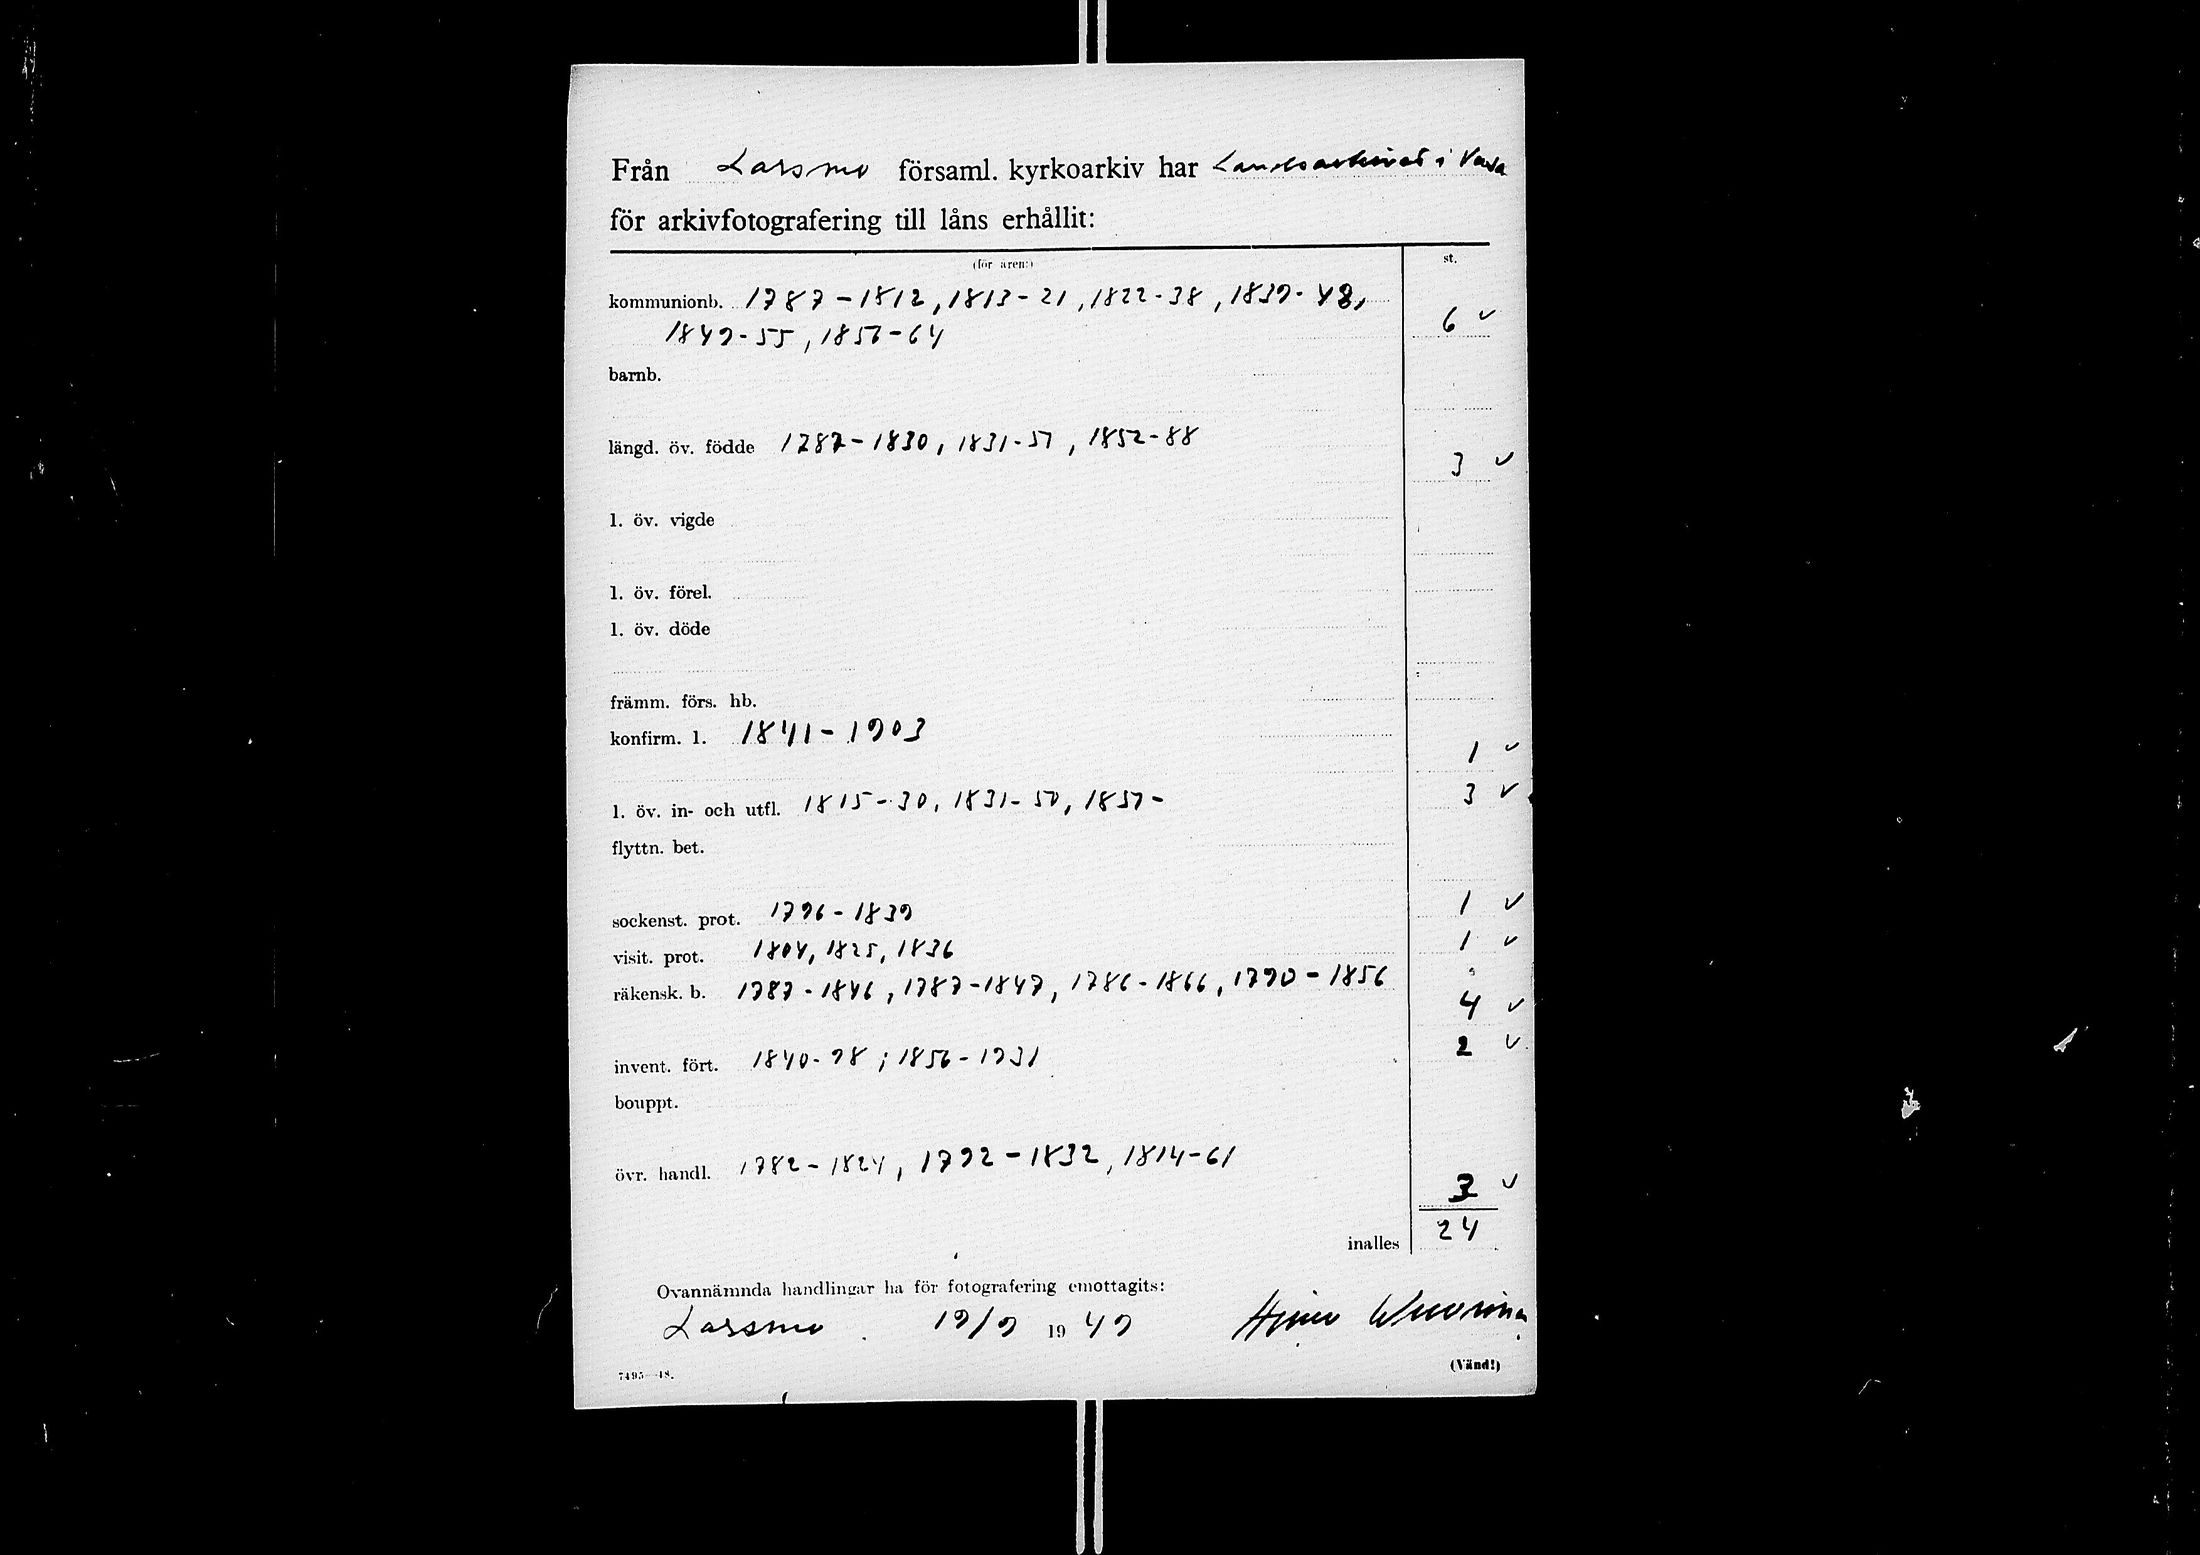 Från Larsmo församl. kyrkoarkiv har Landsarkivet i Vasa
för arkivfotografering till låns erhållit:
(för åren:) st.
kommunionb. 1787-1812, 1813-21, 1822-38, 1839-48,
1849-55, 1856-64 6 ✓
barnb.
längd. öv. födde 1787-1830, 1831-51, 1852-88
3 ✓
l. öv. vigde
l. öv. förel.
l. öv. döde
främm. förs. hb.
konfirm. l. 1841-1903
1 ✓
l. öv. in- och utfl. 1815-30, 1831-50, 1851- 3 ✓
flyttn. bet.
sockenst. prot. 1796-1839 1 ✓
visit. prot. 1804, 1825, 1836 1 ✓
räkensk. b. 1787-1846, 1787-1847, 1786-1866, 1790-1856
4 ✓
invent. fört. 1840-98; 1856-1931 2 ✓
bouppt.
övr. handl. 1782-1824, 1792-1832, 1814-61
3 ✓
inalles 24
Ovannämnda handlingar ha för fotografering emottagits:
Larsmo 19/9 1949
7495—48. (Vänd!)